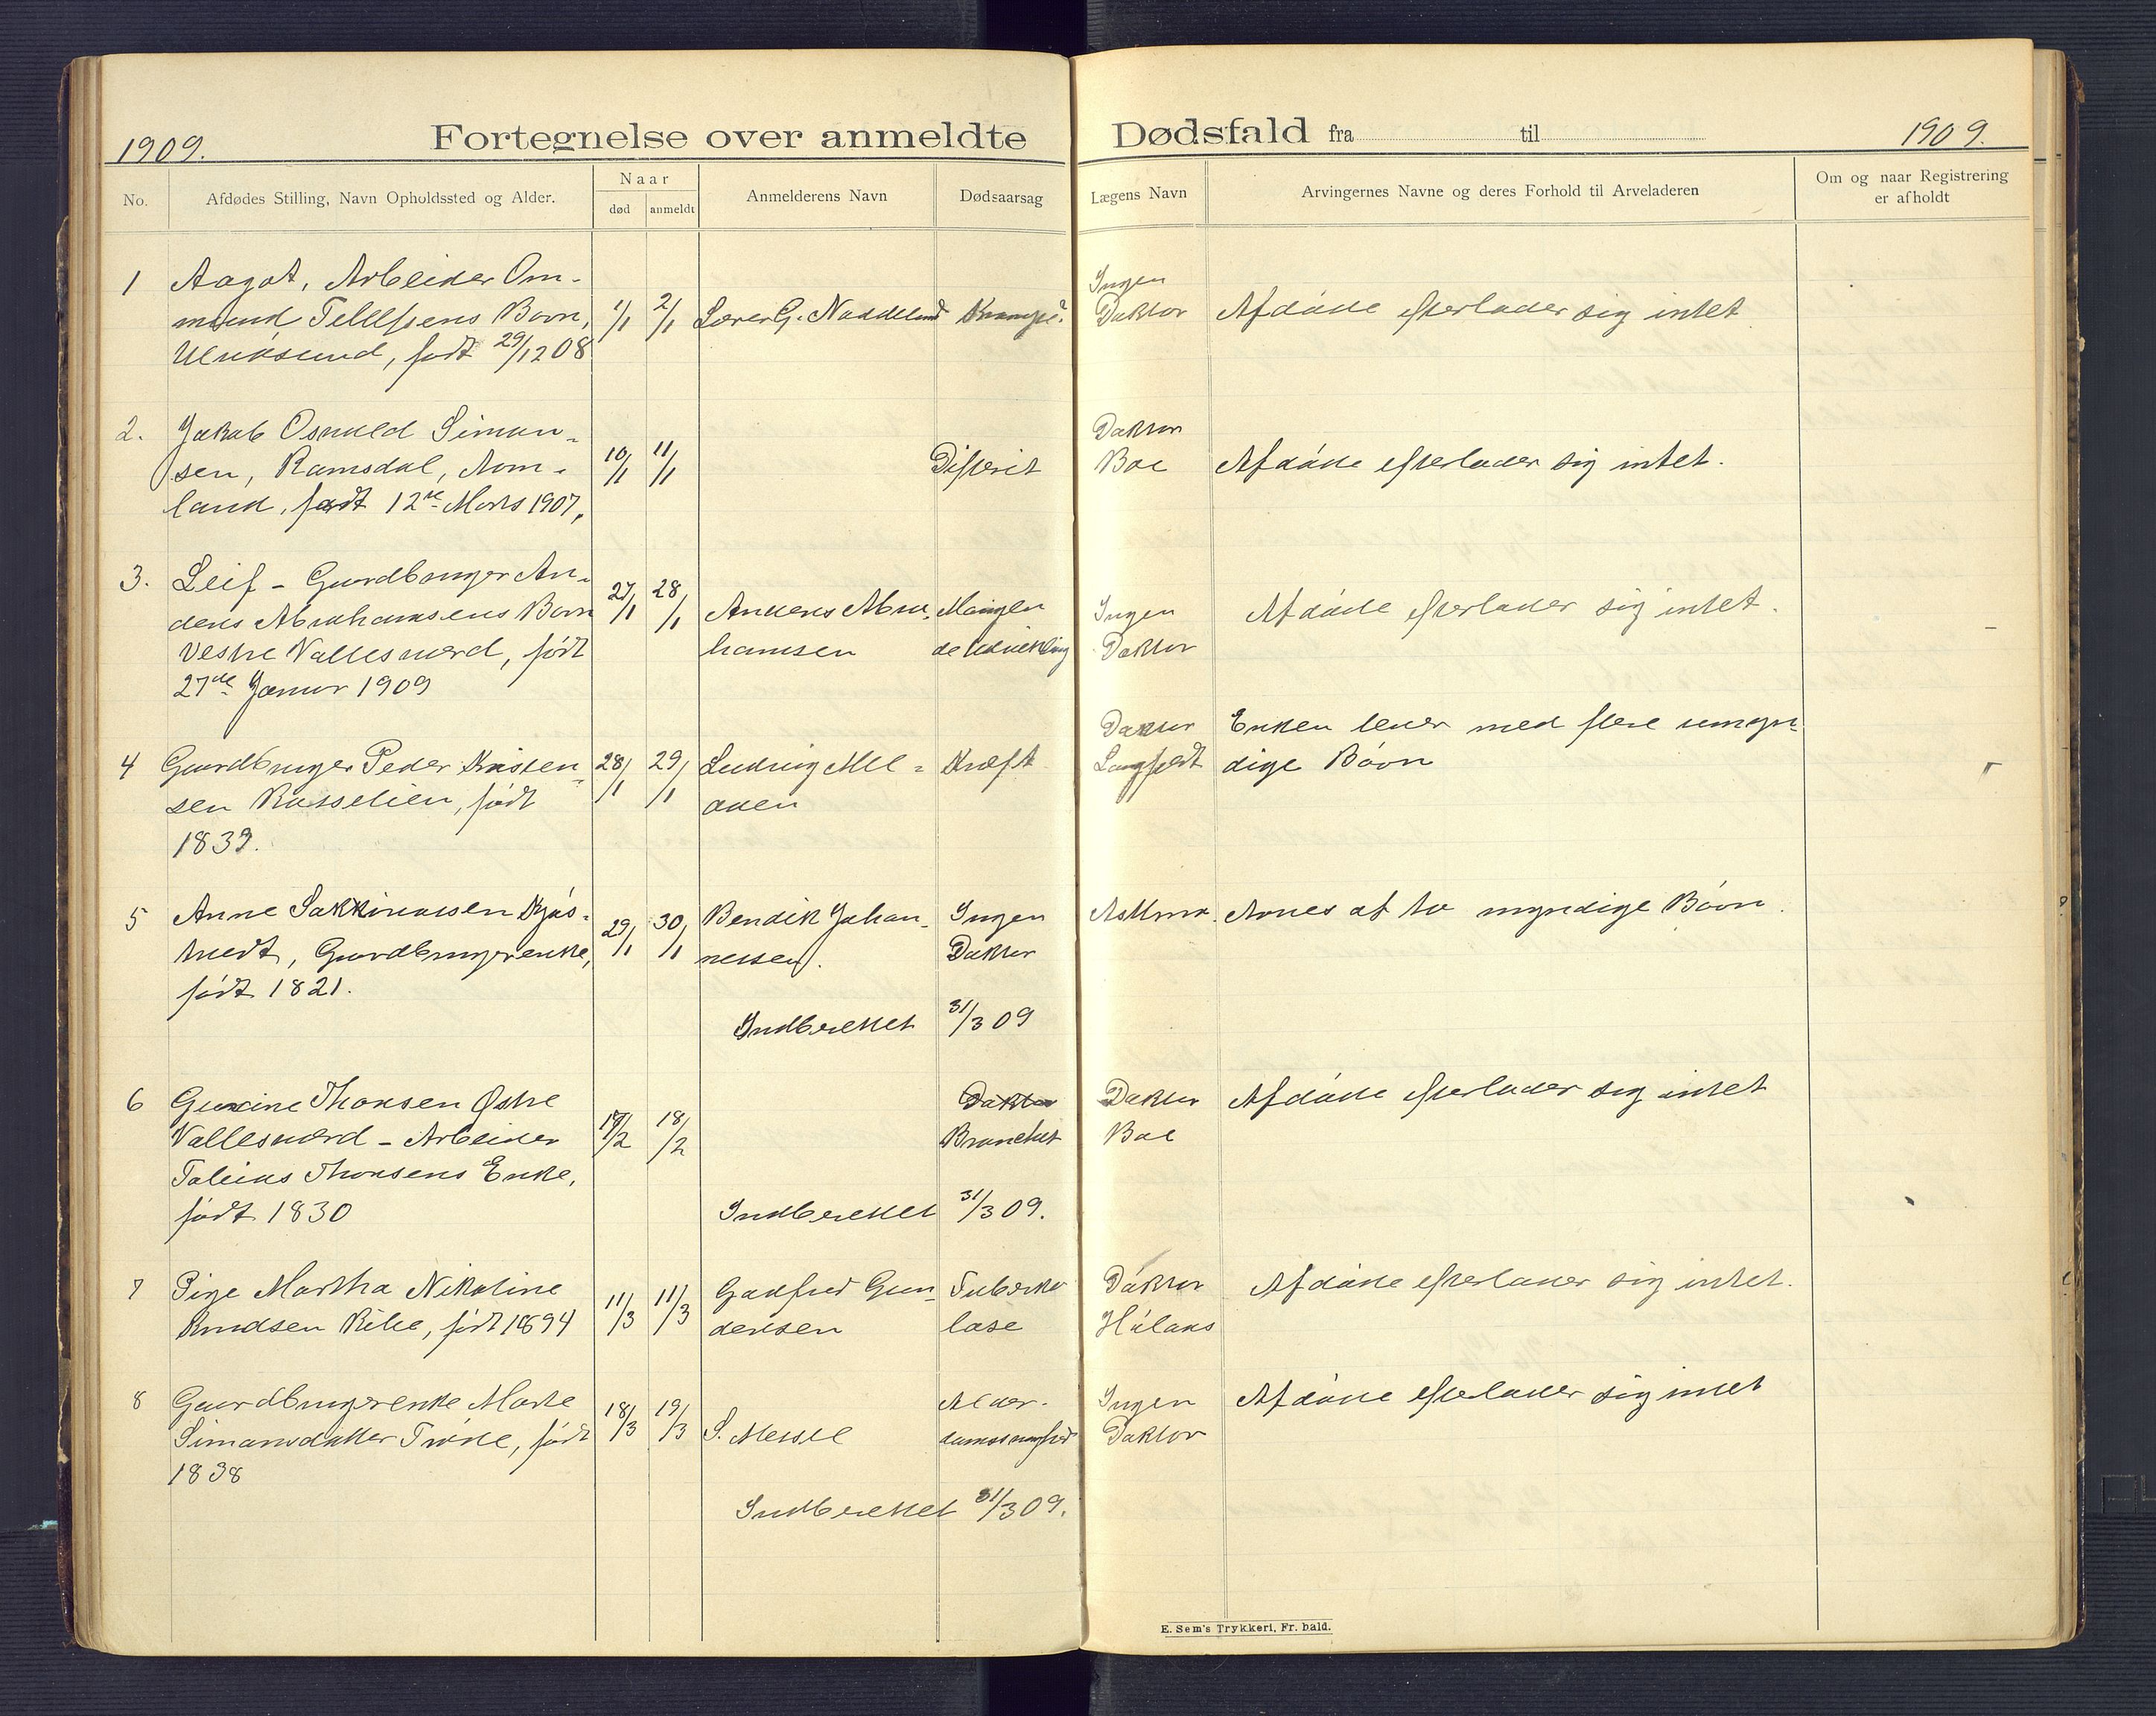 1909.
Fortegnelse over anmeldte Dødsfald fra til
1909.
No.
Afdødes Stilling, Navn Opholdssted og Alder.
Naar
død
anmeldt
Anmelderens Navn
Dødsaarsag
Lægens Navn
Arvingernes Navne og deres Forhold til Arveladeren
Om og naar Registrering
er afholdt
1 Aagot, Arbeider Om-
mund Tellefsens Barn, 1/1 2/1 Lærer G. Naddelund Krampe?
født 29/12 08
Ingen
Doktor Afdøde efterlader sig intet
2. Jakob Osvald Simon-
sen, Ramsdal, Aom- 10/1 11/1 Difterit
land, født 12te Marts 1907,
Doktor
Boe Afdøde efterlader sig intet.
3. Leif - Gaardbruger An-
ders Abrahamsens Barn 27/1 28/1 Anders Abra- Manglen
Vestre Vallesværd, født hamsen de Udvikling
27de Januar 1909
Ingen Afdøde efterlader sig intet.
Doktor
4 Gaardbruger Peder Kristen- 28/1 29/1 Ludvig Kræft
sen Rosselien, født
1839.
Doktor Enken lever med flere umyn-
Langfeldt dige Børn
5 Anne Sakkariassen Kjøs-
tvedt, Gaardbrugerenke, 29/1 30/1 Bendik Johan- Ingen
født 1821. nessen. Doktor
Indberettet 31/3 09
Astma. Arves af to myndige Børn.
6 Thorsen Østre Doktor
Vallesværd - Arbeider 17/2 18/2 Bronchit
Tobias Thorsens Enke,
født 1830 Indberettet 31/3 09.
Doktor Afdøde efterlader sig intet
Boe
7 Pige Martha Nikoline 11/3 11/3 Godfred Gun- Tuberku
Knudsen Ribe, født 1894 dersen lose
Doktor Afdøde efterlader sig intet.
8 Gaardbrugerenke Marte 18/3 19/3 Alder-
Simonsdatter født S. Messel domssvaghed
1838
Indberettet 31/3 09.
Ingen Afdøde efterlader sig intet
Doktor
E. Sem's Trykkeri, Fr. hald.